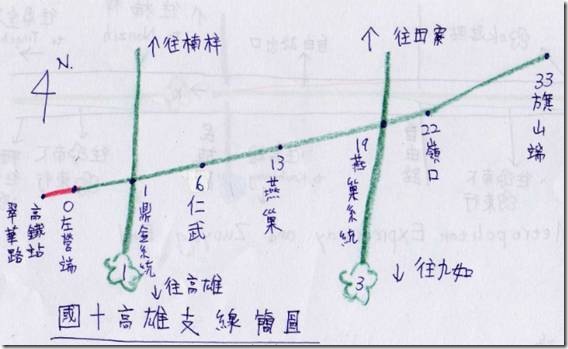 N.
↑往楠梓
↑ 往田寮
33 旗山端
22 嶺口
19 燕巢系統
13 燕巢
6 仁武
1 鼎金系統
0 左營端
高鐵站
翠華路
1
3
↓往高雄
↓ 往九如
國十高雄支線簡圖